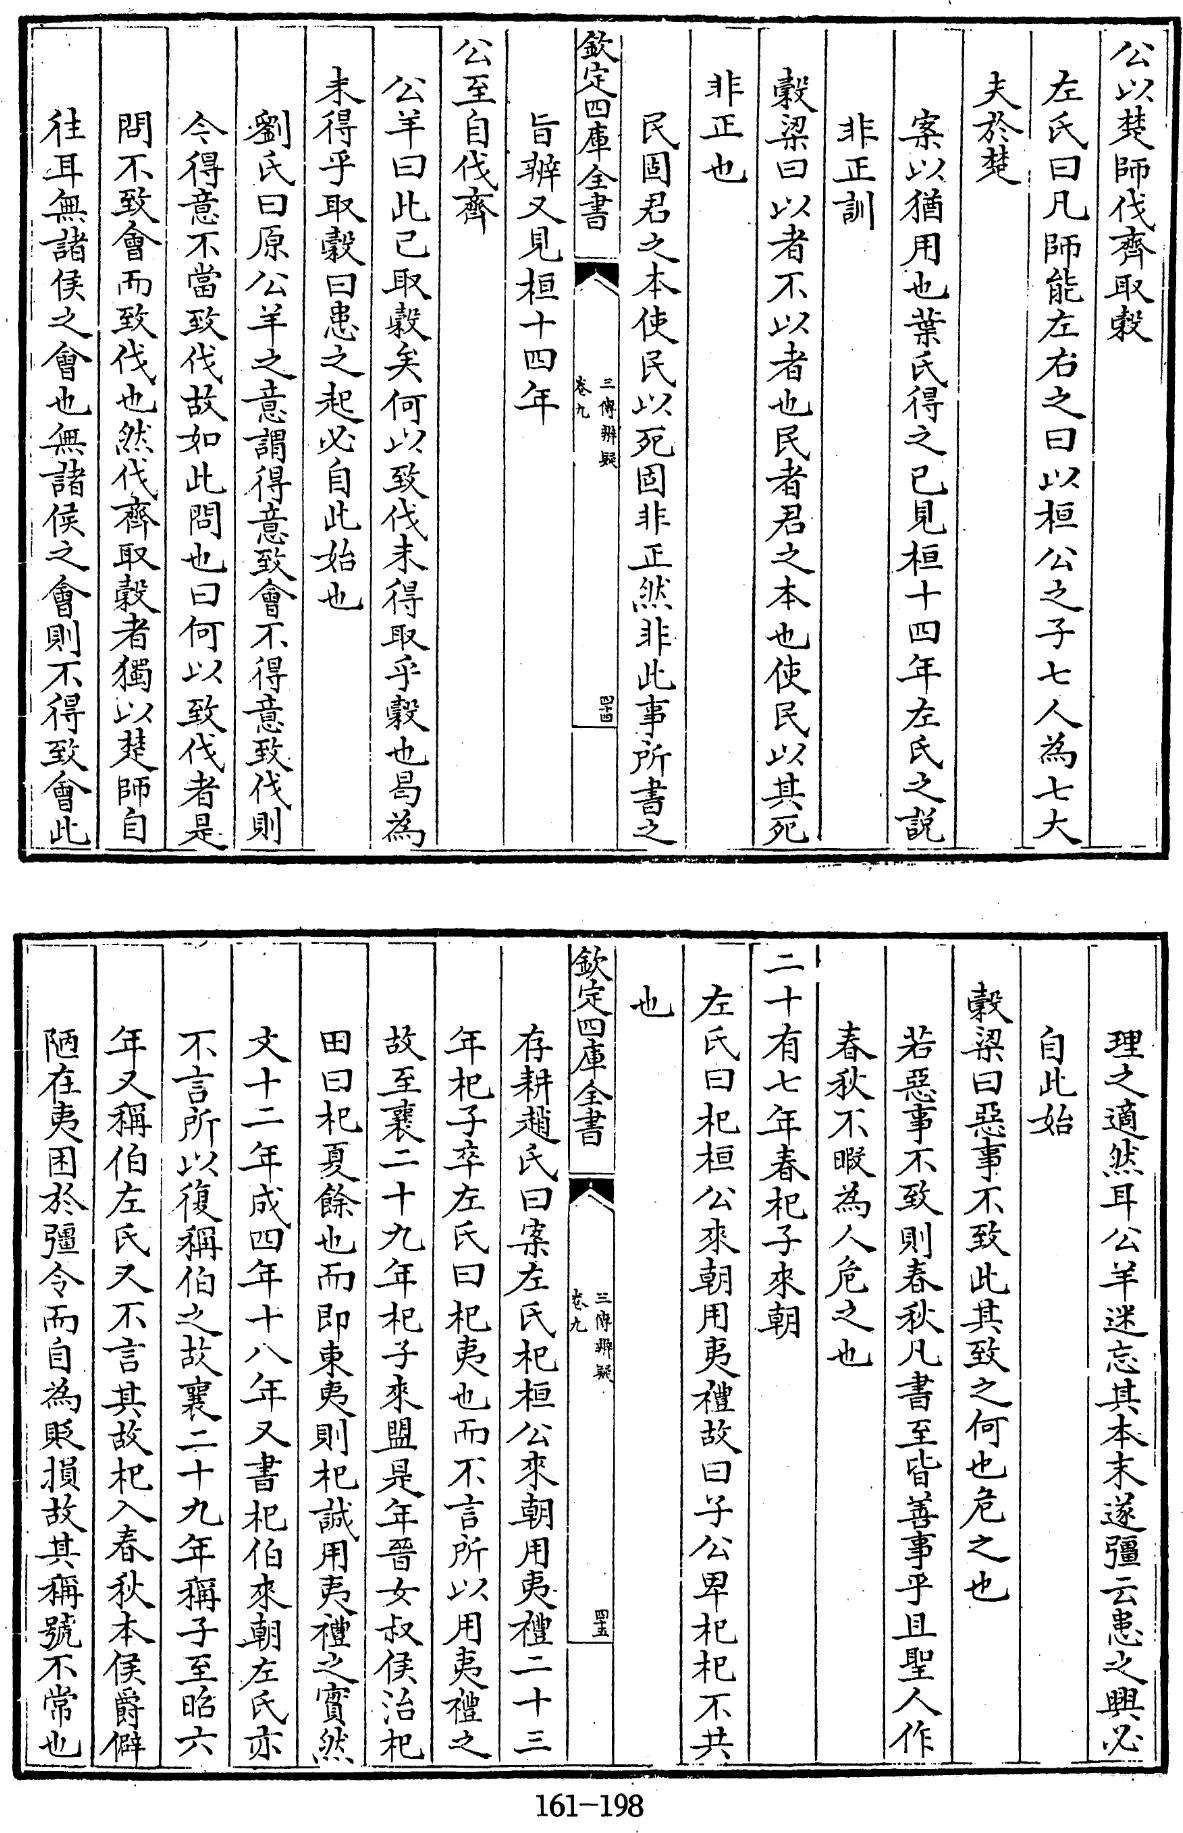 公以楚師伐齊取穀
左氏曰凡師能左右之曰以桓公之子七人為七大
夫於楚
案以猶用也葉氏得之已見桓十四年左氏之説
非正訓
穀梁曰以者不以者也民者君之本也使民以其死
非正也
民固君之本使民以死固非正然非此事所書之
欽定四庫全書
三傳辨疑
卷九
四十四
旨辨又見桓十四年
公至自伐齊
公羊曰此已取穀矣何以致伐未得取乎穀也曷為
未得乎取穀曰患之起必自此始也
劉氏曰原公羊之意謂得意致會不得意致伐則
今得意不當致伐故如此問也曰何以致伐者是
問不致會而致伐也然伐齊取穀者獨以楚師自
往耳無諸侯之會也無諸侯之會則不得致會此
理之適然耳公羊迷忘其本末遂彊云患之興必
自此始
穀梁曰惡事不致此其致之何也危之也
若惡事不致則春秋凡書至皆善事乎且聖人作
春秋不暇為人危之也
二十有七年春杞子來朝
左氏曰杞桓公來朝用夷禮故曰子公卑杞杞不共
也
欽定四庫全書
三傳辨疑
卷九
四十五
存耕趙氏曰案左氏杞桓公來朝用夷禮二十三
年杞子卒左氏曰杞夷也而不言所以用夷禮之
故至襄二十九年杞子來盟是年晉女叔侯治杞
田曰杞夏餘也而即東夷則杞誠用夷禮之實然
文十二年成四年十八年又書杞伯來朝左氏亦
不言所以復稱伯之故襄二十九年稱子至昭六
年又稱伯左氏又不言其故杞入春秋本侯爵僻
陋在夷困於彊令而自為貶損故其稱號不常也
161-198